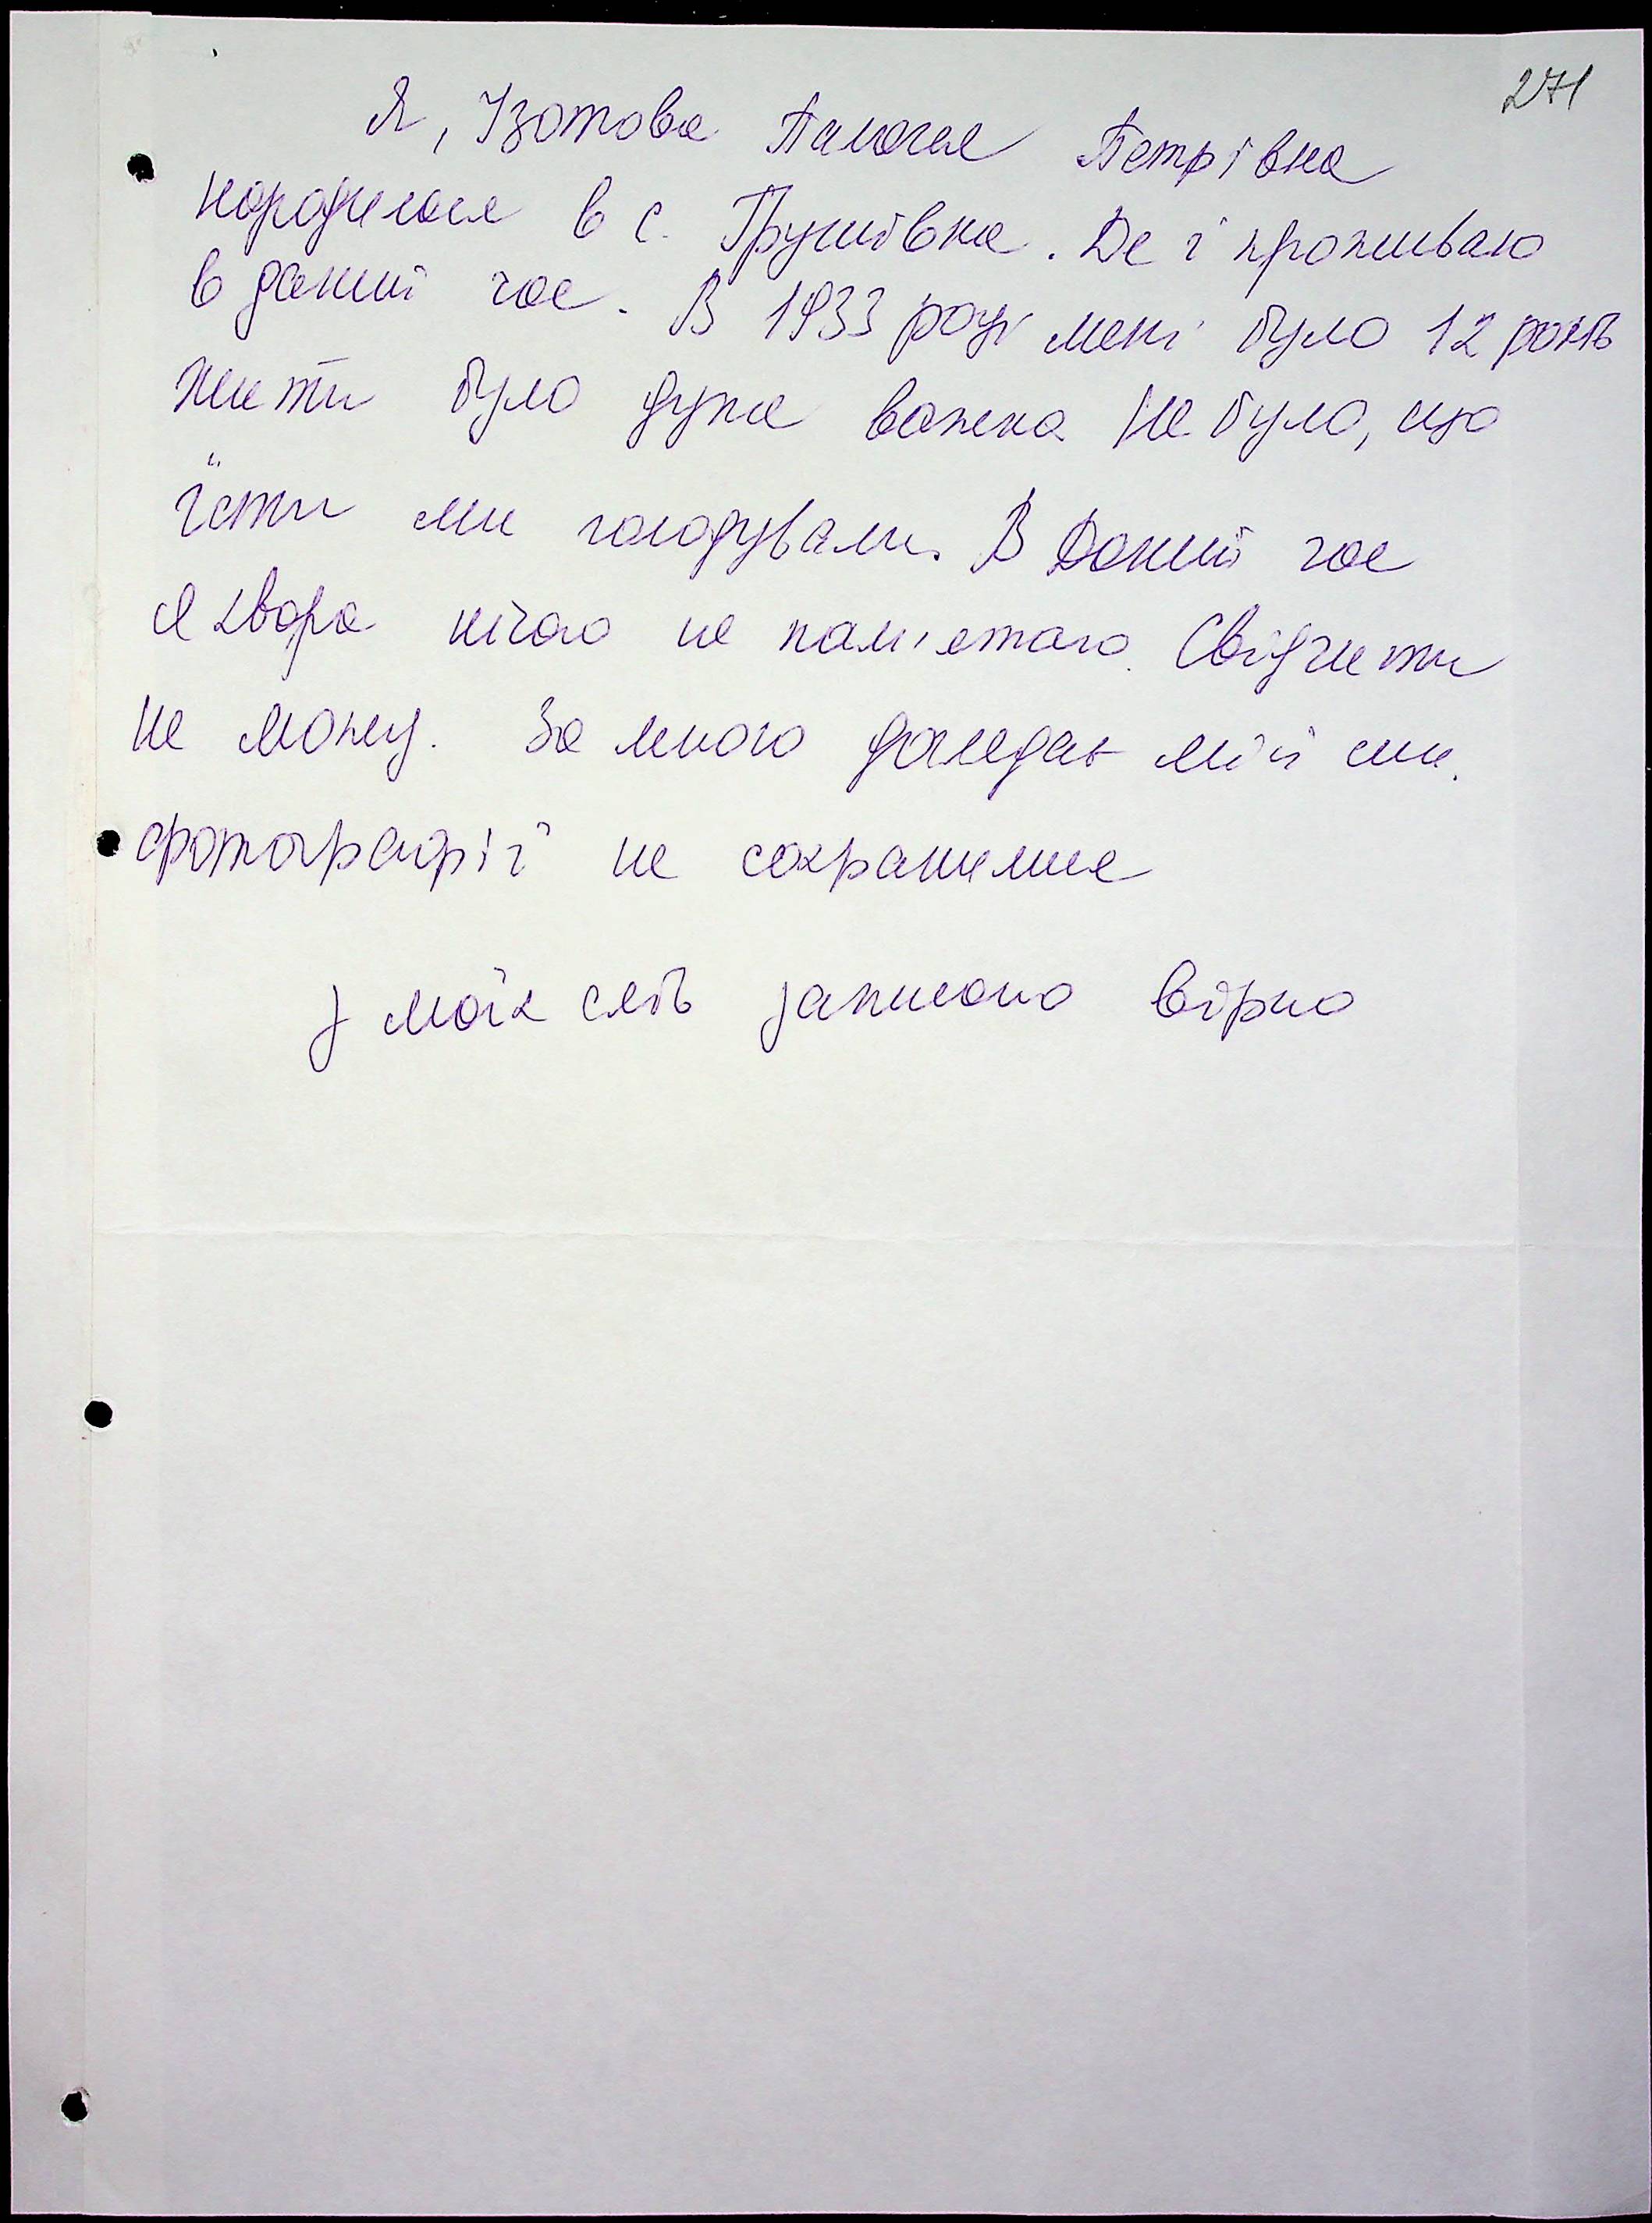 271
Я, Ізотова Палагея Петрівна
народилася в с. Грушівка. Де і проживаю
в даний час. В 1933 році мені було 12 років
жити було дуже важка Не було, що
їсти ми голодували. В Даний час
я хвора нічого не пам'ятаю. Свідчити
не можу. За мною доглядає мій син.
фотографії не сохранилися
з моїх слів записано вірно